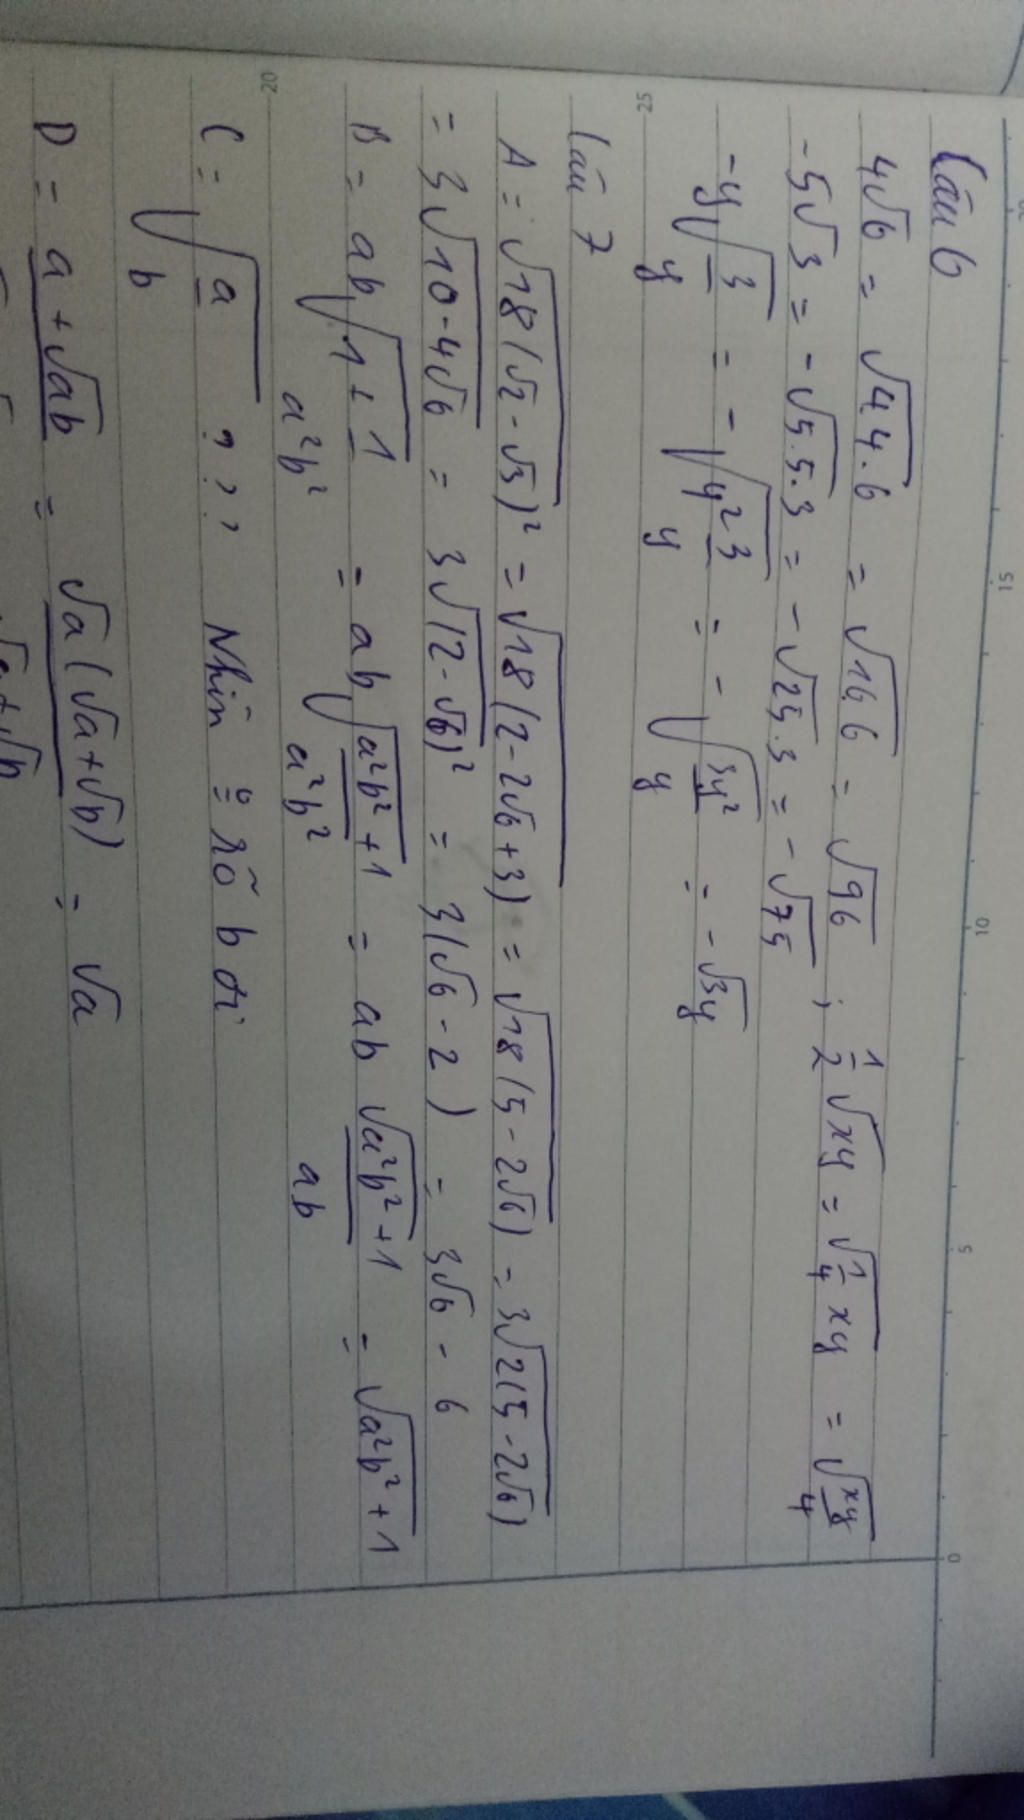 Câu 6
4√6 = √4.4.6 = √16.6 = √96 ; 1/2 √xy = √(1/4 xy) = √(xy/4)
-5√3 = -√5.5.3 = -√25.3 = -√75
-y√(3/y) = -√(y²3/y) = -√(3y²/y) = -√3y
Câu 7
A = √18(√2-√3)² = √18(2-2√6+3) = √18(5-2√6) = 3√2(5-2√6)
= 3√10-4√6 = 3√(2-√6)² = 3(√6-2) = 3√6-6
B = ab√(1+1/a²b²) = ab√((a²b²+1)/a²b²) = ab √(a²b²+1)/ab = √a²b²+1
C = √(a/b) ??? Nhìn rõ b đi
D = (a+√ab)/ = √a(√a+√b)/(√a+√b) = √a
20
25
15
10
5
0